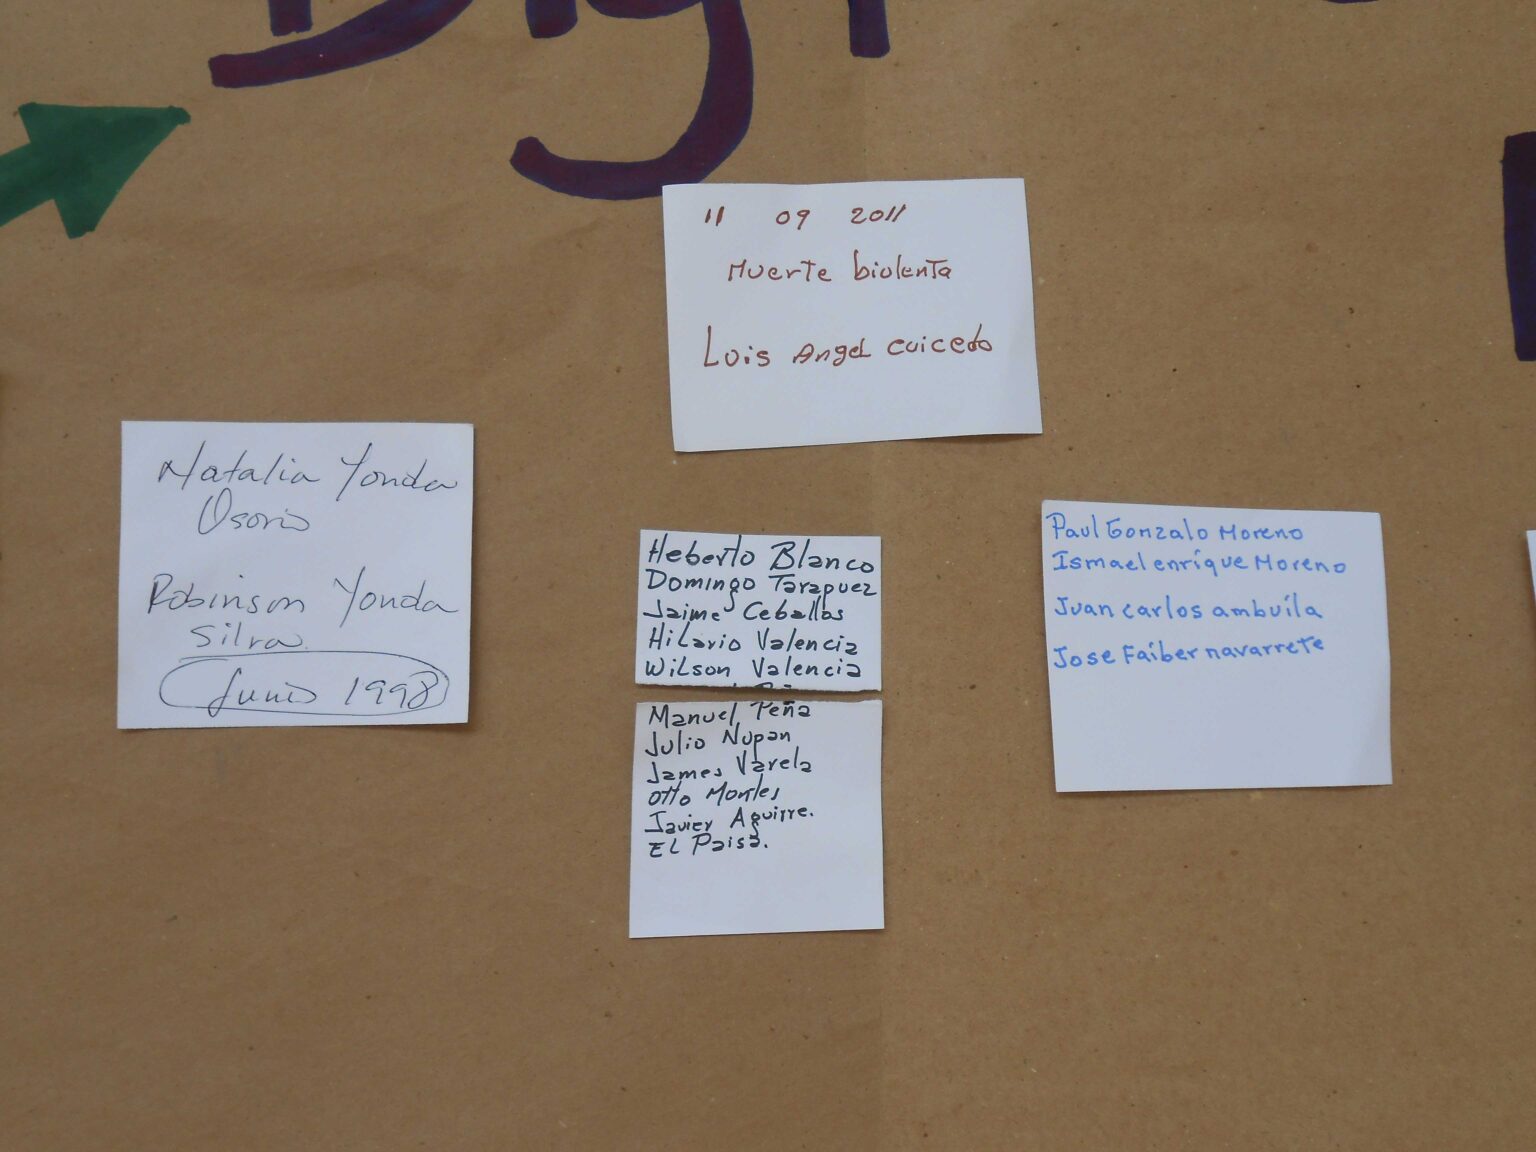 11 09 2011
Muerte biolenta
Luis Angel Cuicedo
Natalia Yonda
Osorio
Robinson Yonda
Silva
Junio 1998
Heberto Blanco
Domingo Tarapuez
Jaime Ceballos
Hilario Valencia
Wilson Valencia
Manuel Peña
Julio Nupan
James Varela
Otto Montes
Javier Aguirre.
El Paisa.
Paul Gonzalo Moreno
Ismael enríque Moreno
Juan carlos ambuíla
Jose Faíber navarrete